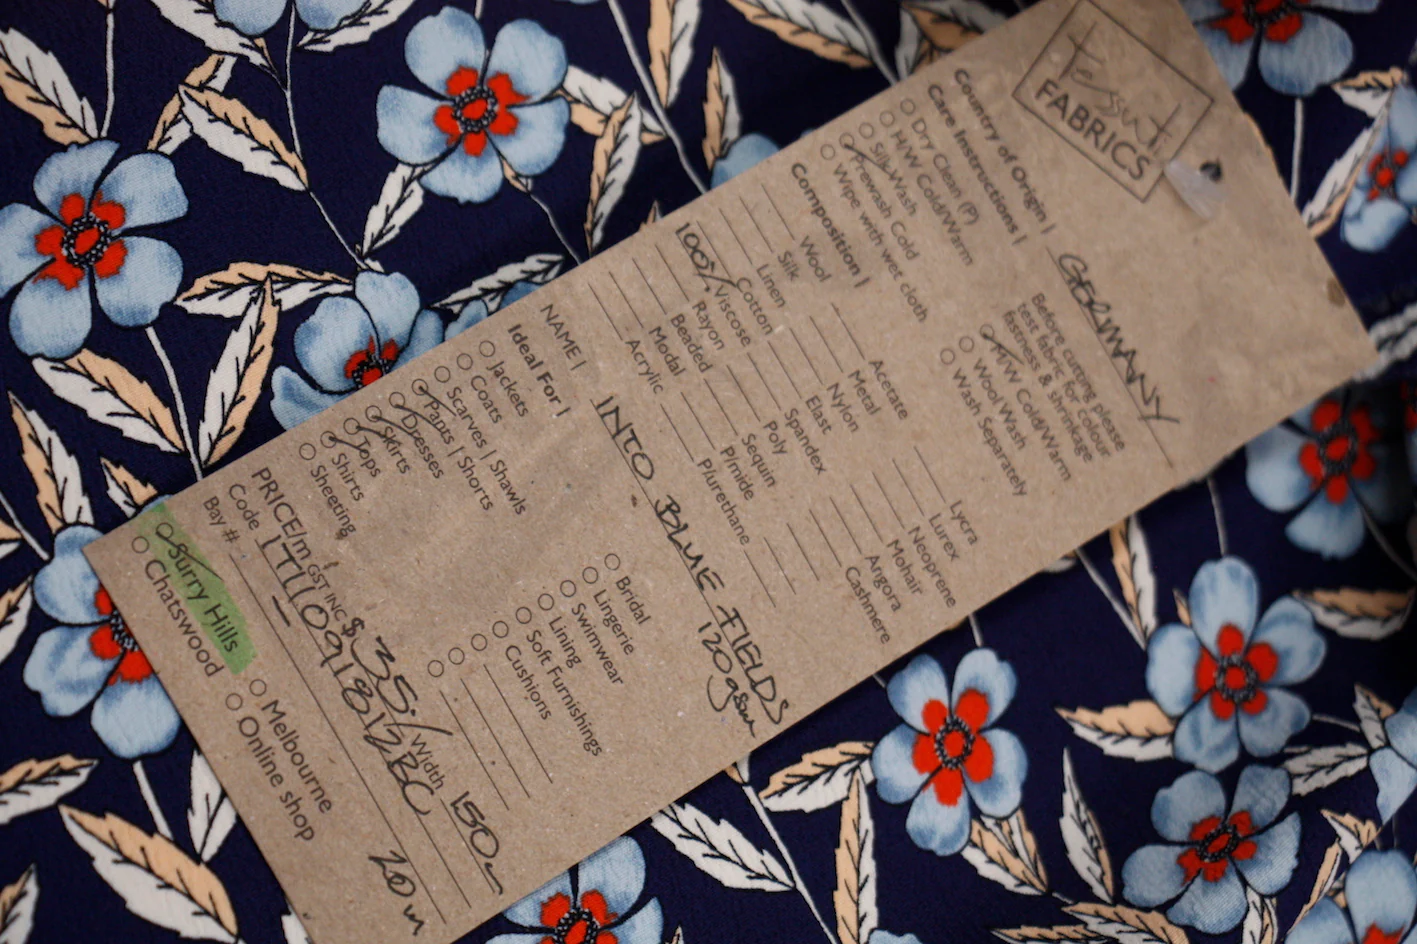 Tessuti
FABRICS
Country of Origin | GERMANY
Care Instructions |
Dry Clean (P)
H/W Cold/Warm
Silk Wash
Prewash Cold
Wipe with wet cloth
Before cutting please
test fabric for colour
fastness & shrinkage
M/W Cold/Warm
Wool Wash
Wash Separately
Composition |
Wool
Silk
Linen
Cotton
100% Viscose
Rayon
Beaded
Modal
Acrylic
Acetate
Metal
Nylon
Elast
Spandex
Poly
Sequin
P/mide
P/urethane
Lycra
Lurex
Neoprene
Mohair
Angora
Cashmere
NAME | INTO BLUE FIELDS
120gsm
Ideal For |
Jackets
Coats
Scarves | Shawls
Pants | Shorts
Dresses
Skirts
Tops
Shirts
Sheeting
Bridal
Lingerie
Swimwear
Lining
Soft Furnishings
Cushions
PRICE/m GST INC $ 35./ Width 150
Code
Bay # 20m
Surry Hills
Chatswood
Melbourne
Online shop